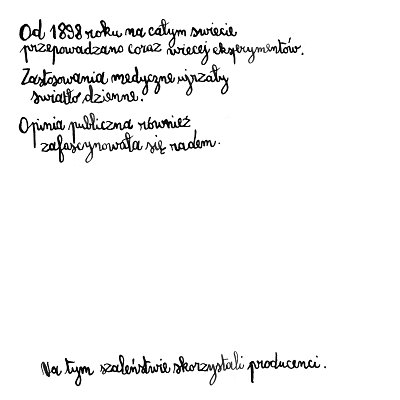 Od 1898 roku na całym świecie
przeprowadzano coraz więcej eksperymentów.
Zastosowania medyczne ujrzały
światło dzienne.
Opinia publiczna również
zafascynowała się radem.
Na tym szaleństwie skorzystali producenci.